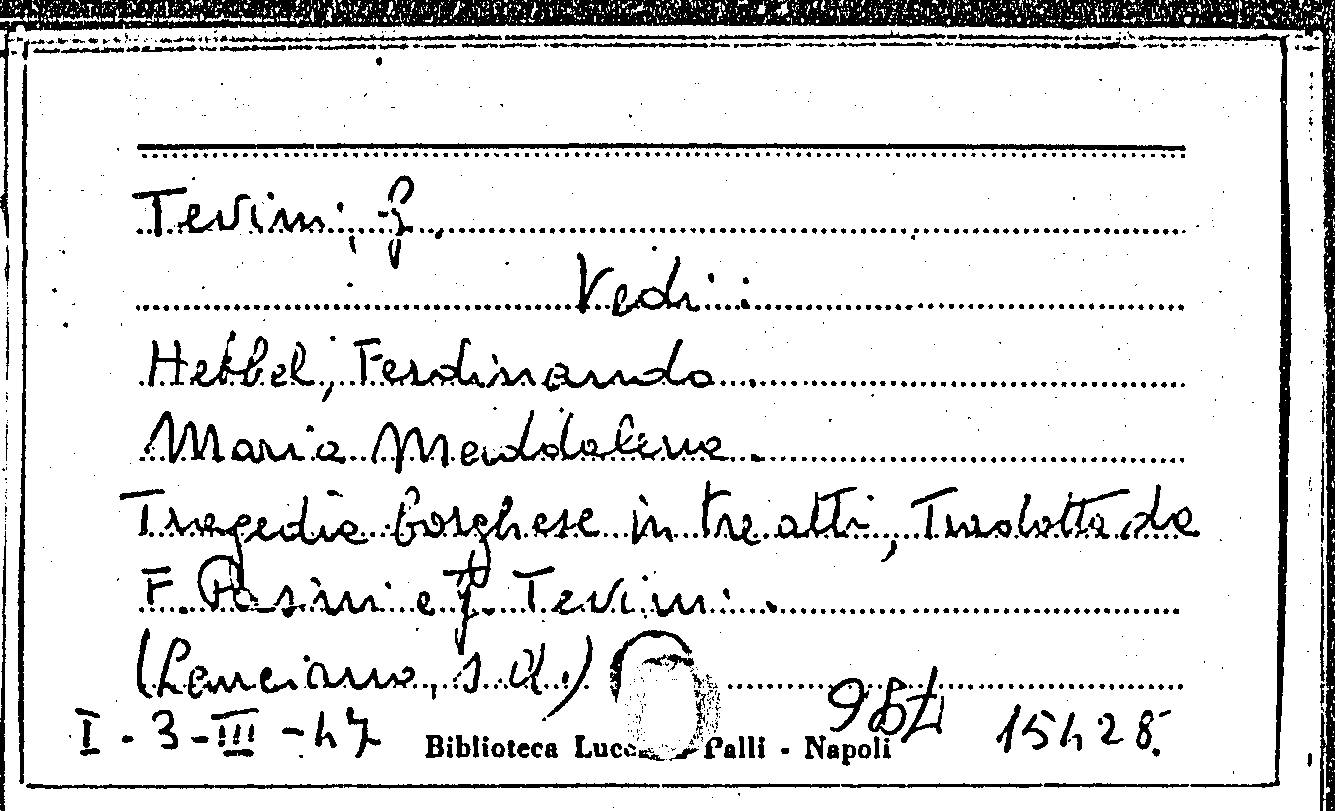 Tevini, G.
Vedi:
Hebbel, Ferdinando
Maria Maddalena.
Tragedia borghese in tre atti, Tradotta da
F. Pasini e G. Tevini.
(Lanciano, s.d.)
I-3-III-47
15428
Biblioteca Lucchesi Palli - Napoli